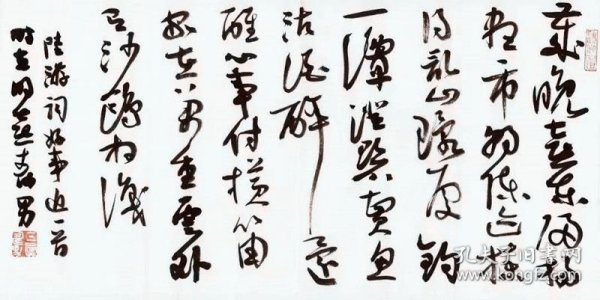 歲晚喜东归扫
尽市朝陈迹拣
得乱山环处钓
一潭澄碧卖鱼
沽酒醉还
醒心事付横笛
家在万重云外
有沙鸥相识
陆游词好事近一首
时在
孔夫子旧书网
www.kongfz.com